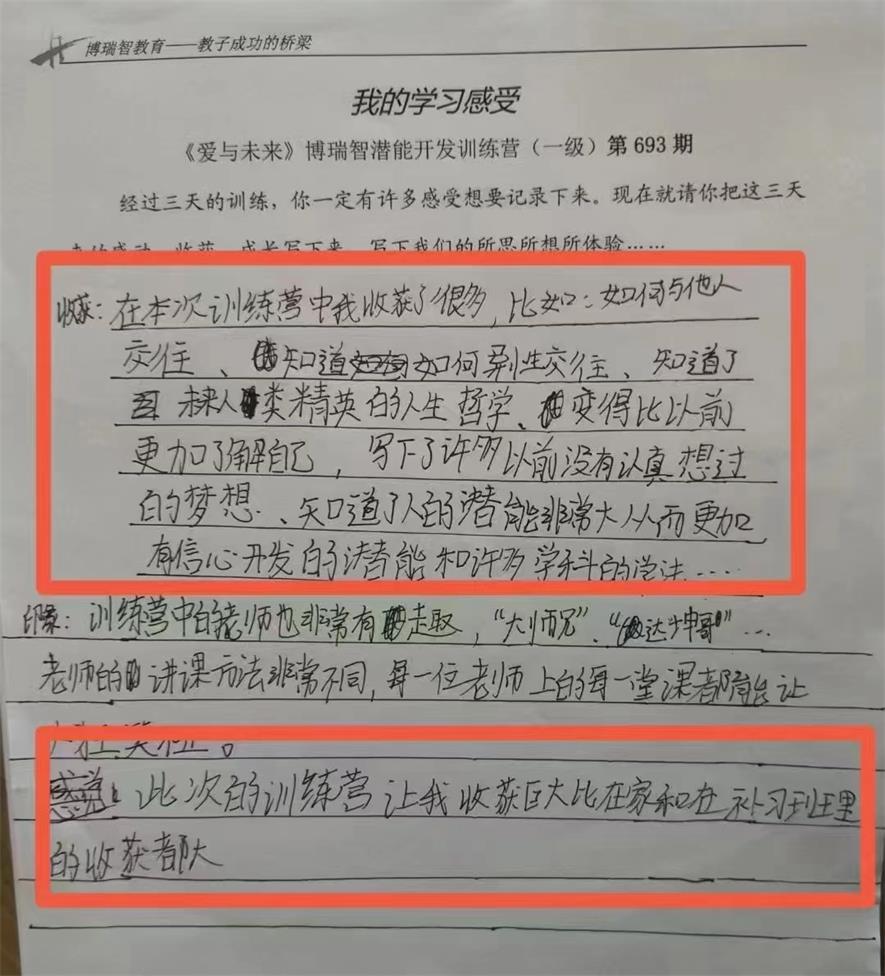 博瑞智教育——教子成功的桥梁
我的学习感受
《爱与未来》博瑞智潜能开发训练营（一级）第 693 期
经过三天的训练，你一定有许多感受想要记录下来。现在就请你把这三天
的感动、收获、成长写下来，写下我们的所思所想所体验……
收获：在本次训练营中我收获了很多，比如：如何与他人
交往、知道如何异性交往、知道了
未来人类精英的人生哲学、变得比以前
更加了解自己，写下了许多以前没有认真想过
的梦想、知道了人的潜能非常大从而更加
有信心开发的潜能和许多学科的学法……
印象：训练营中的老师也非常有趣，“大师兄”、“达坤哥”…
老师的讲课方法非常不同，每一位老师上的每一堂课都能让
此次的训练营让我收获巨大比在家和在补习班里
的收获都大